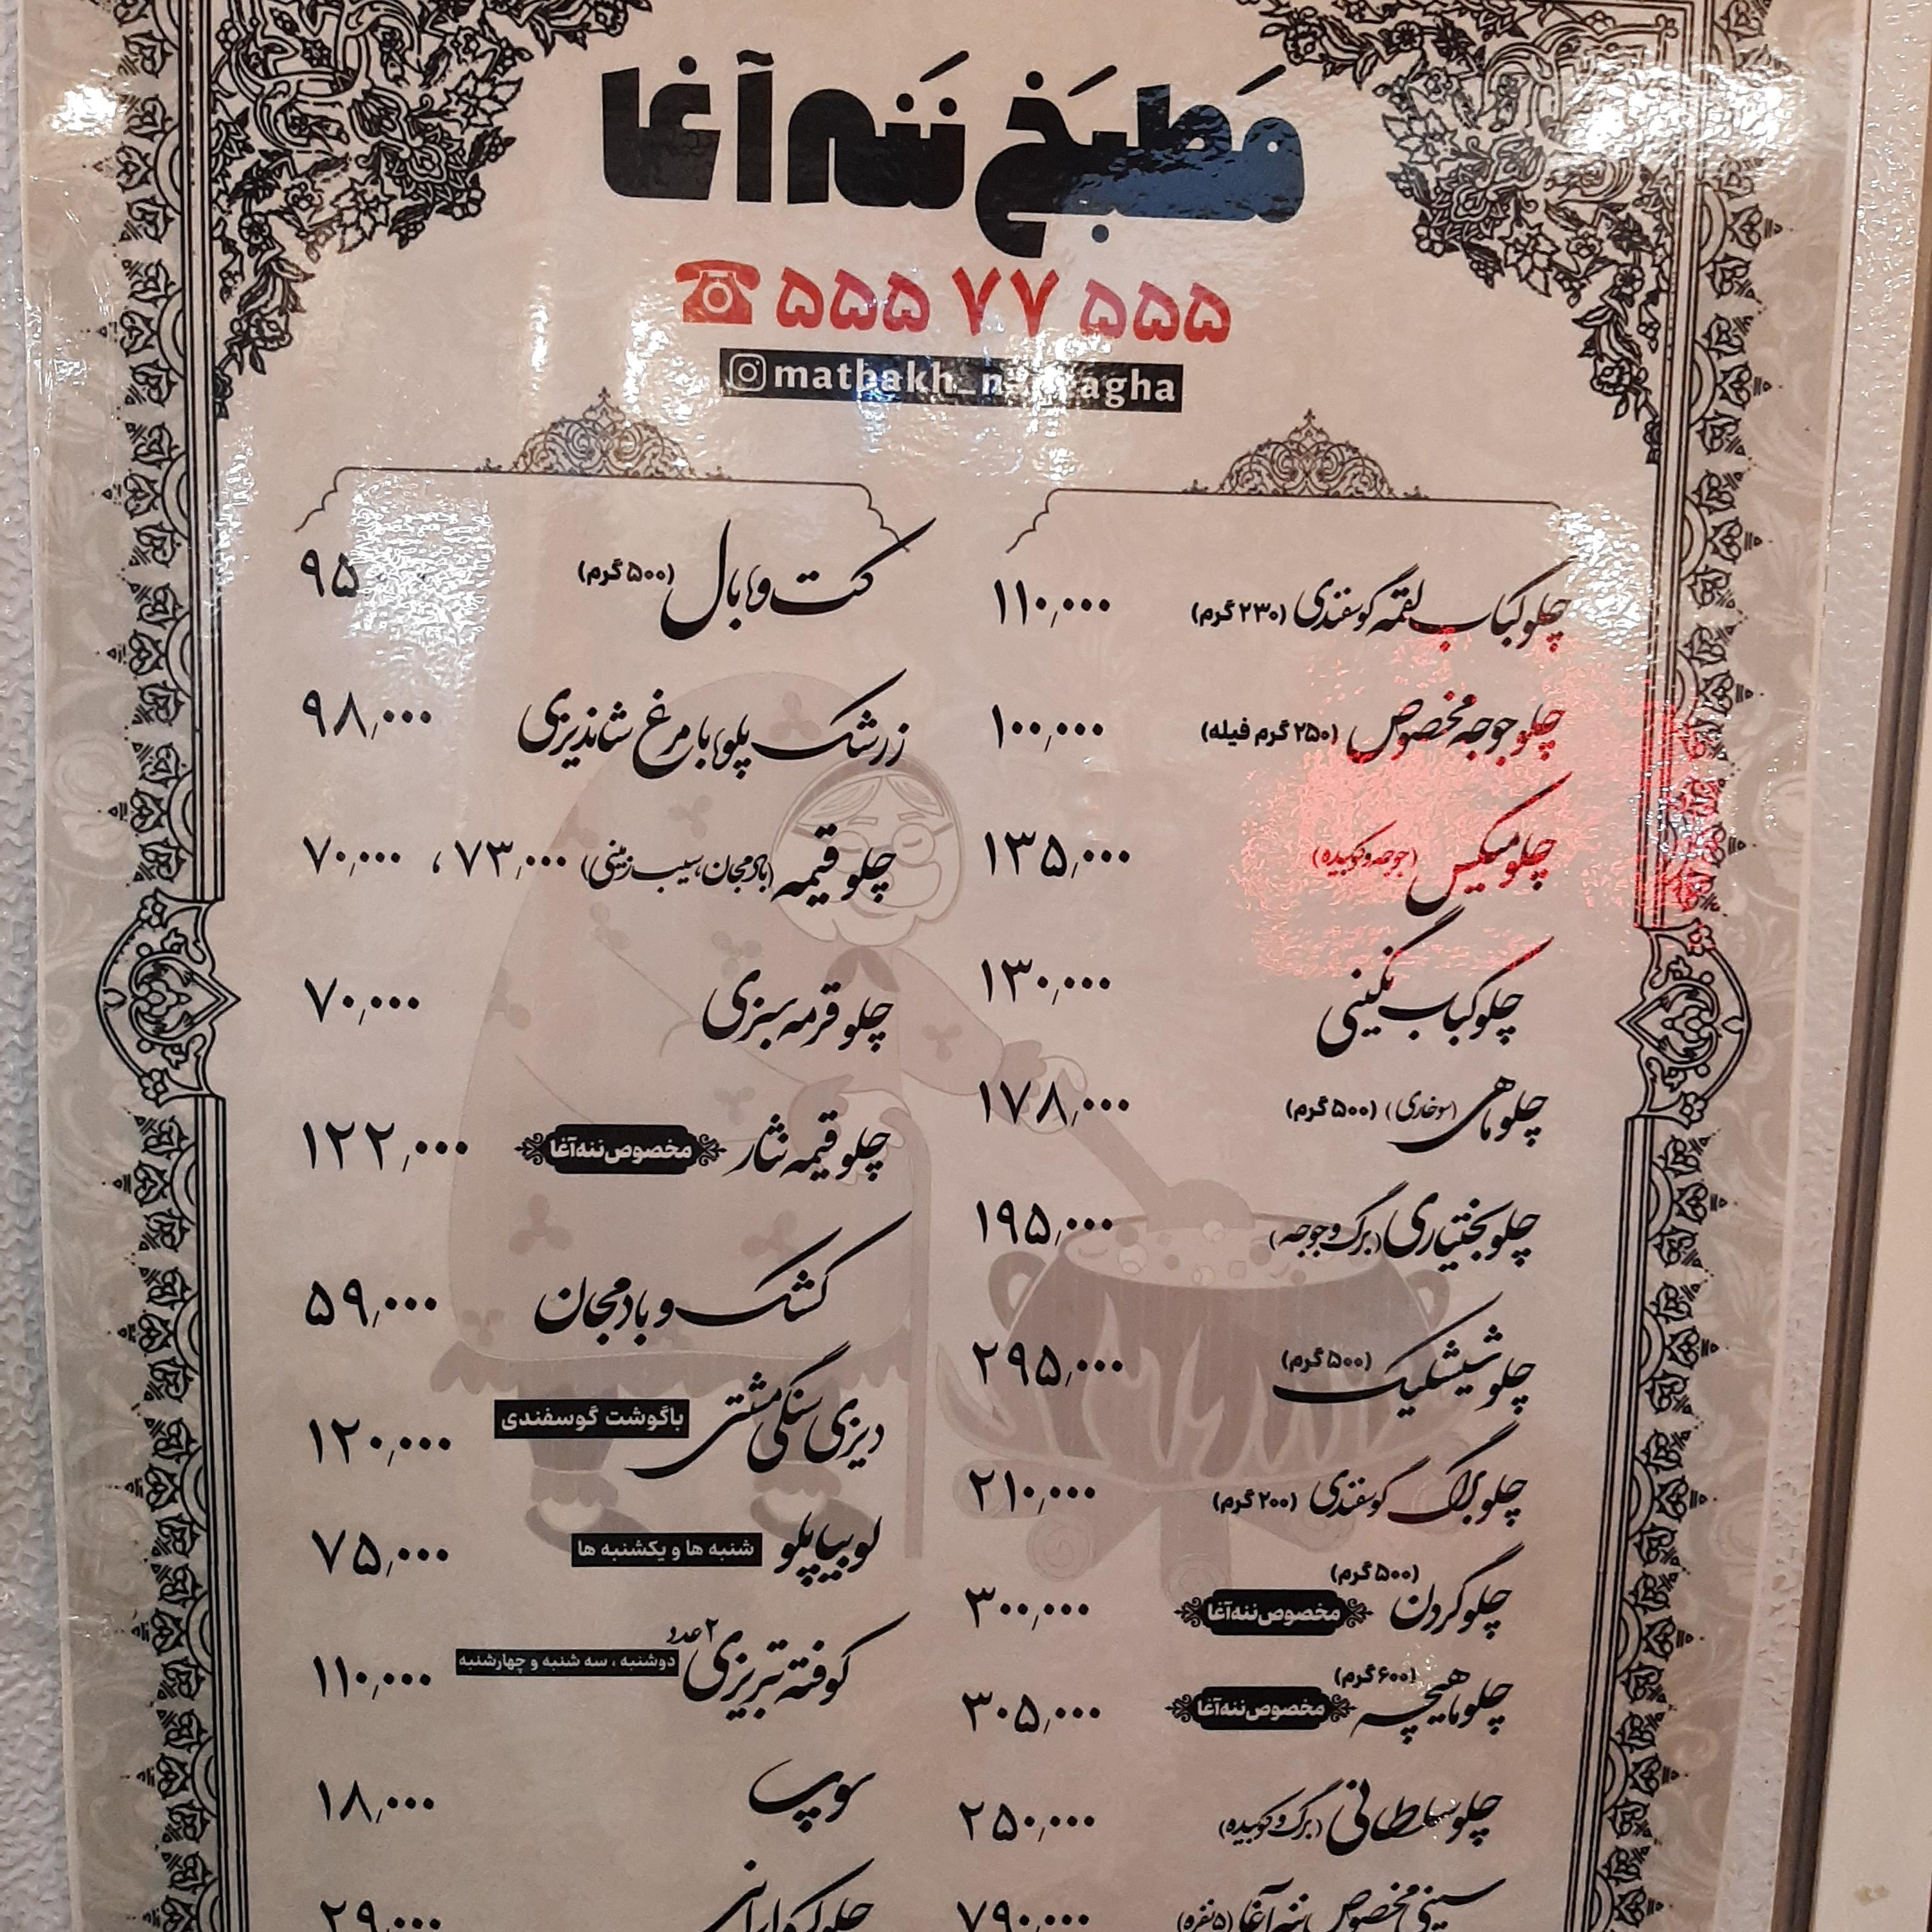 مَطبَخ نَنه آغا
۵۵۵ ۷۷ ۵۵۵
agha
چلو کباب لقمه گوسفندی (۲۳۰ گرم) ۱۱۰٬۰۰۰
چلو جوجه مخصوص (۲۵۰ گرم فیله) ۱۰۰٬۰۰۰
چلو میکس (جوجه و کوبیده) ۱۳۵٬۰۰۰
چلو کباب نگینی ۱۳۰٬۰۰۰
چلو ماهی (سوخاری) (۵۰۰ گرم) ۱۷۸٬۰۰۰
چلو بختیاری (برگ و جوجه) ۱۹۵٬۰۰۰
چلو شیشلیک (۵۰۰ گرم) ۲۹۵٬۰۰۰
چلو برگ گوسفندی (۲۰۰ گرم) ۲۱۰٬۰۰۰
چلو گردن (۵۰۰ گرم) مخصوص ننه آغا ۳۰۰٬۰۰۰
چلو ماهیچه (۶۰۰ گرم) مخصوص ننه آغا ۳۰۵٬۰۰۰
چلو سلطانی (برگ و کوبیده) ۲۵۰٬۰۰۰
سینی مخصوص ننه آغا (۵ نفره) ۷۹۰٬۰۰۰
کت و بال (۵۰۰ گرم) ۹۵
زرشک پلو با مرغ شاندیزی ۹۸٬۰۰۰
چلو قیمه (بادمجان، سیب زمینی) ۷۳٬۰۰۰ ، ۷۰٬۰۰۰
چلو قرمه سبزی ۷۰٬۰۰۰
چلو قیمه نثار مخصوص ننه آغا ۱۲۲٬۰۰۰
کشک و بادمجان ۵۹٬۰۰۰
دیزی سنگی مشتی باگوشت گوسفندی ۱۲۰٬۰۰۰
لوبیا پلو شنبه ها و یکشنبه ها ۷۵٬۰۰۰
کوفته تبریزی ۲ عدد دوشنبه ، سه شنبه و چهارشنبه ۱۱۰٬۰۰۰
سوپ ۱۸٬۰۰۰
چلو کره ایرانی ۲۹٬۰۰۰